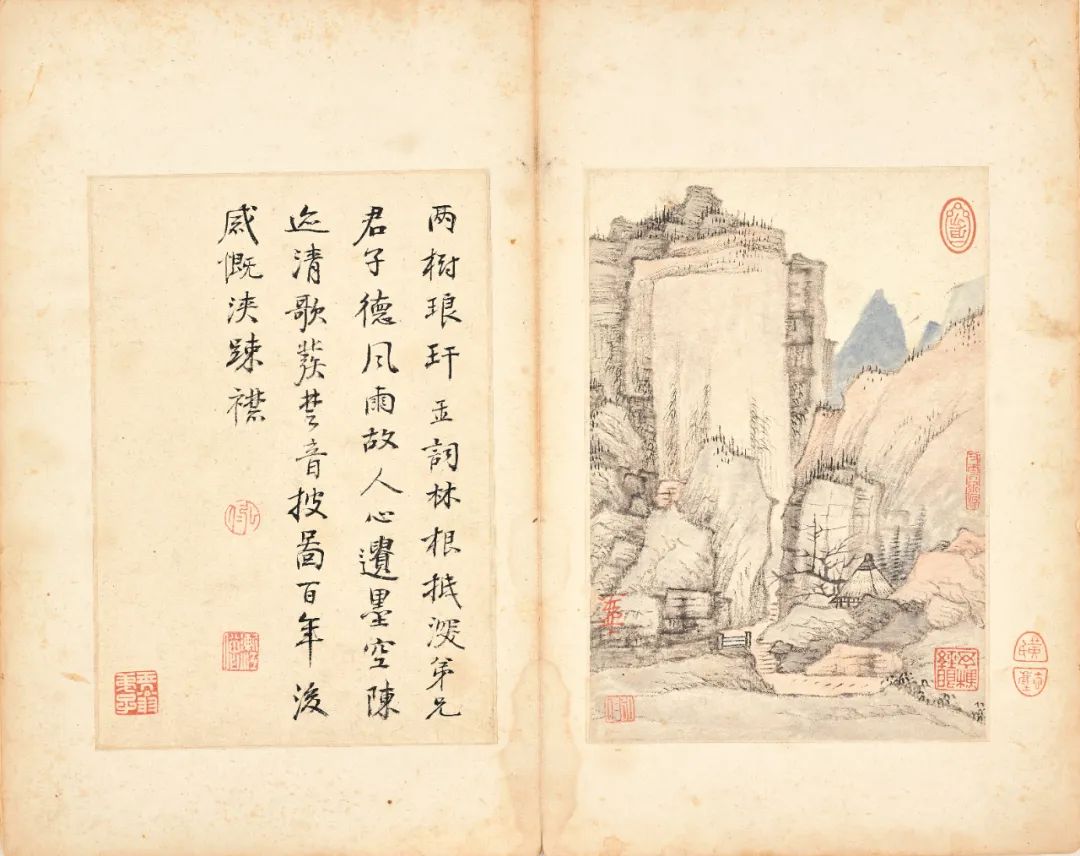 两樹琅玕玉詞林根抵深弟兄
君子德風雨故人心遺墨空陳
迹清歌發楚音披啚百年後
感慨浹踈襟